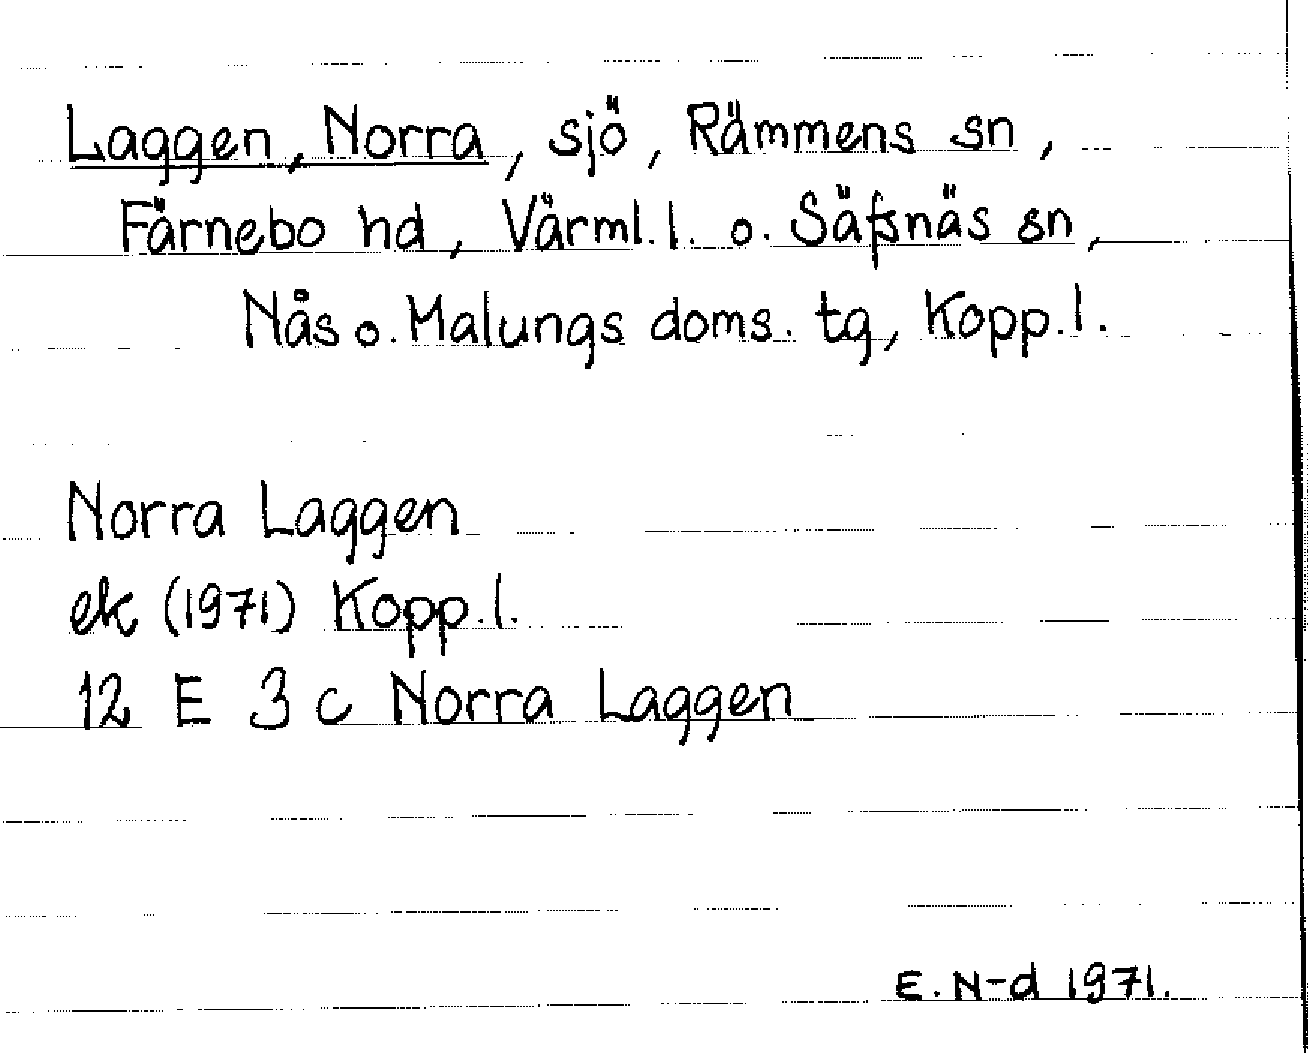 Laggen, Norra, sjö, Rämmens sn,
Färnebo hd, Värml. l. o. Säfsnäs sn,
Nås o. Malungs doms. tg, Kopp. l.
Norra Laggen
ek (1971) Kopp. l.
12 E 3 c Norra Laggen
E. N-d 1971.